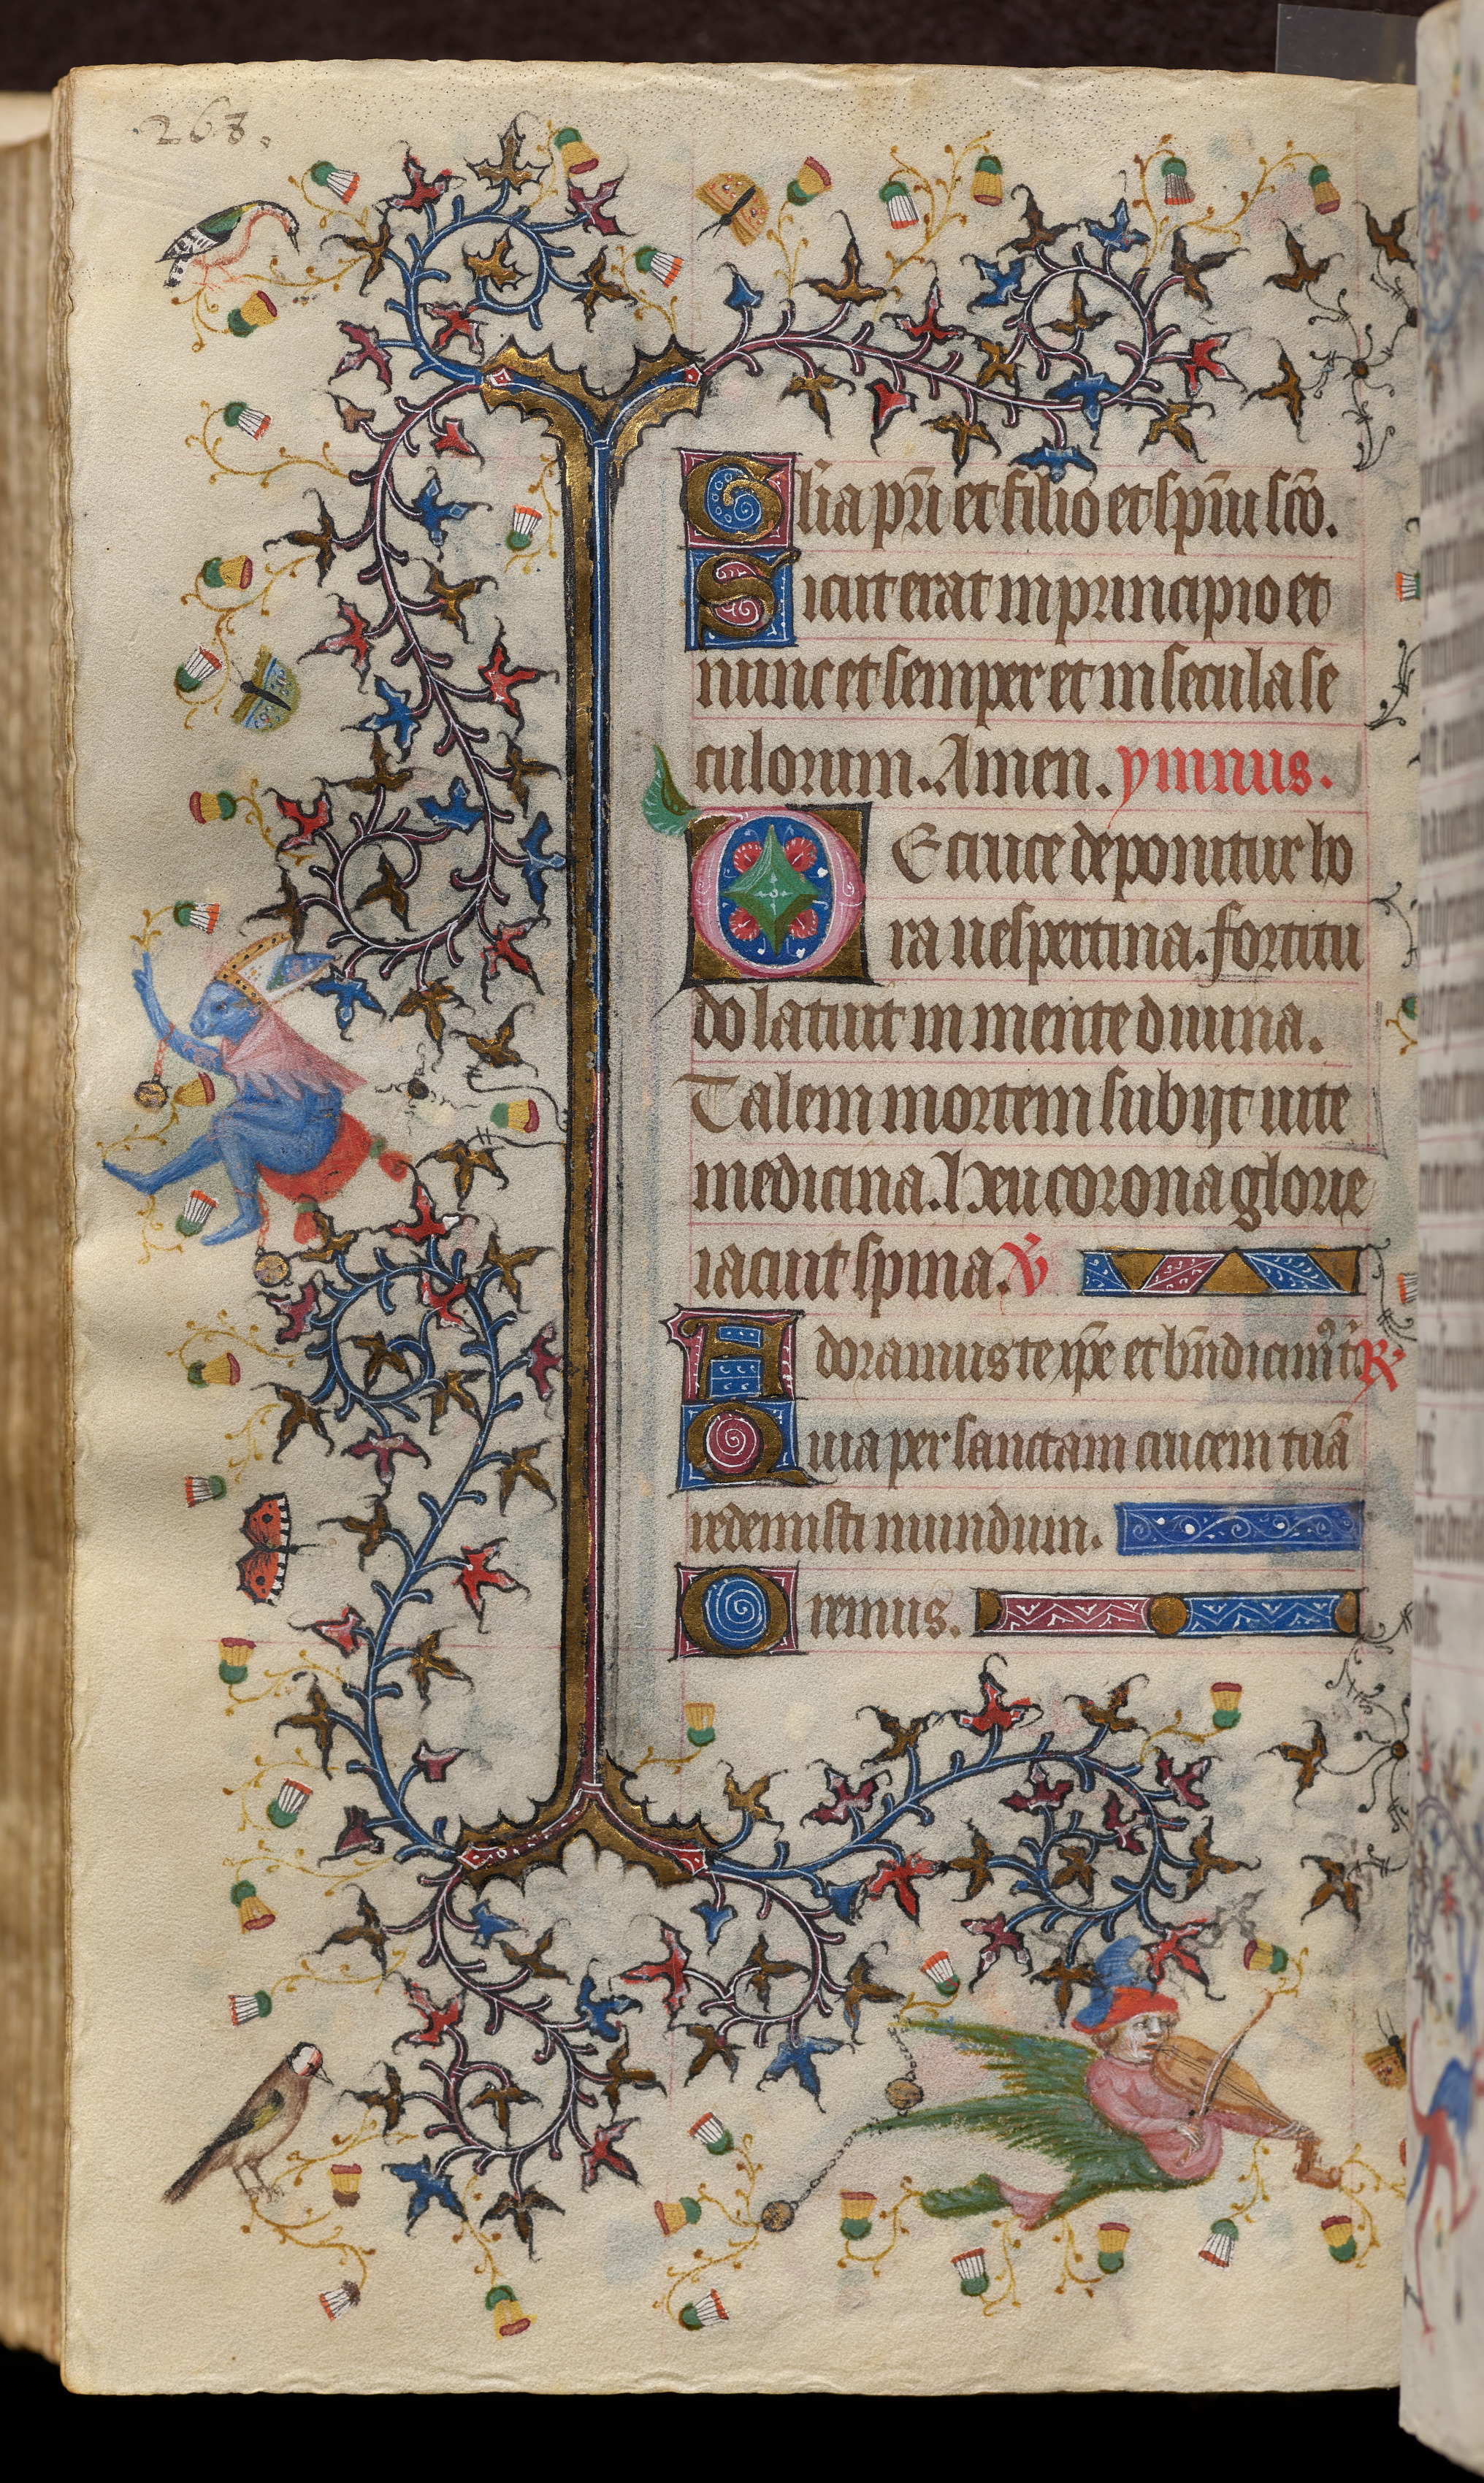 268.
Glia pr̄i et filio et sp̄iu sc̄o.
Sicut erat in principio et
nunc et semper et in secula se
culorum. Amen. ymnus.
De cruce deponitur ho
ra uespertina. fortitu
do latuit in mente diuina.
Talem mortem subijt uite
medicina. heu corona glorie
iacuit spina. V̄
Adoramus te xp̄e et bn̄dicim᷒ t̄. R̄
Quia per sanctam crucem tuā
redemisti mundum.
Oremus.